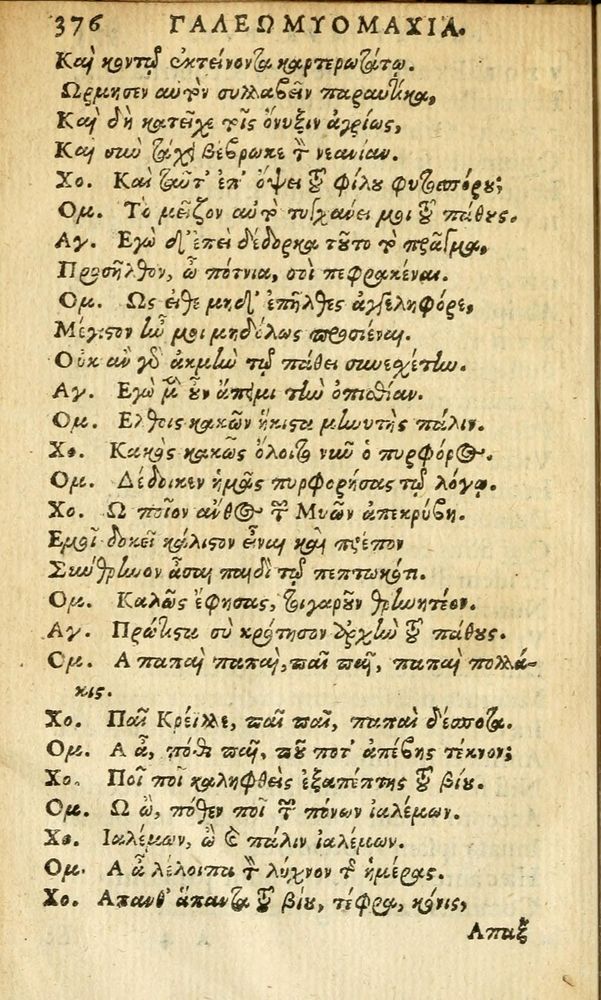 376 ΓΑΛΕΩΜΥΟΜΑΧΙΑ.
Καὶ κοντῷ ἐκτείνοντα καρτερωτάτῳ.
Ωρμησεν αὐτὸν συλλαβεῖν παραυτίκα,
Καὶ δὴ κατεῖχε τοῖς ὄνυξιν ἀγρίως,
Καὶ σιωὺ τάχει βέβρωκε τὸν νεανίαν.
Χο. Καὶ ταῦτ' ἐπ' ὄψει τοῦ φίλου φυτοσπόρου;
Ομ. Τὸ μεῖζον αὐτὸ τυγχάνει μοι τοῦ πάθους.
Αγ. Εγὼ δ' ἐπεὶ δέδορκα τοῦτο τὸ πρᾶγμα,
Προσῆλθον, ὦ πότνια, σοὶ πεφρακέναι.
Ομ. Ως εἴθε μηδ' ἐπῆλθες ἀγγεληφόρε,
Μέγιστον ἦν μοι μηδόλως προσιέναι.
Οὐκ ἂν γὰρ ἀκμὴν τῷ πάθει συνεσχέτην.
Αγ. Εγὼ μὲν οὖν ἄπειμι τὴν ὀπισθίαν.
Ομ. Ελθοις κακῶν ἥκιστα μηνυτὴς πάλιν.
Χο. Κακὸς κακῶς ὄλοιτο νῦν ὁ πυρφόρος.
Ομ. Δέδοικεν ἡμᾶς πυρφορήσας τῷ λόγῳ.
Χο. Ω ποῖον ἄνθος τῶν Μυῶν ἀπεκρύβη.
Εμοὶ δοκεῖ κάλιστον εἶναι καὶ πρέπον
Σιωύθρηνον ᾆσαι παιδὶ τῷ πεπτωκότι.
Ομ. Καλῶς ἔφησας, τοιγαροῦν θρηνητέον.
Αγ. Πρώτιστα σὺ κρότησον ἀρχὴν τοῦ πάθους.
Ομ. Α παπαὶ παπαὶ, παῖ παῖ, παπαὶ πολλά-
κις.
Χο. Παῖ Κρέϊλλε, παῖ παῖ, παπαὶ δέσποτα.
Ομ. Α ἆ, πόθι παῖ, ποῦ ποτ' ἀπέβης τέκνον;
Χο. Ποῖ ποῖ καληφθεὶς ἐξαπέπτης τοῦ βίου.
Ομ. Ω ὢ, πόθεν ποῖ τῶν πόνων ἰαλέμων.
Χο. Ιαλέμων, ὢ καὶ πάλιν ἰαλέμων.
Ομ. Α ἆ λέλοιπα τὸν λύχνον τῆς ἡμέρας.
Χο. Απανθ' ἅπαντα τοῦ βίου, τέφρα, κόνις,
Απαξ